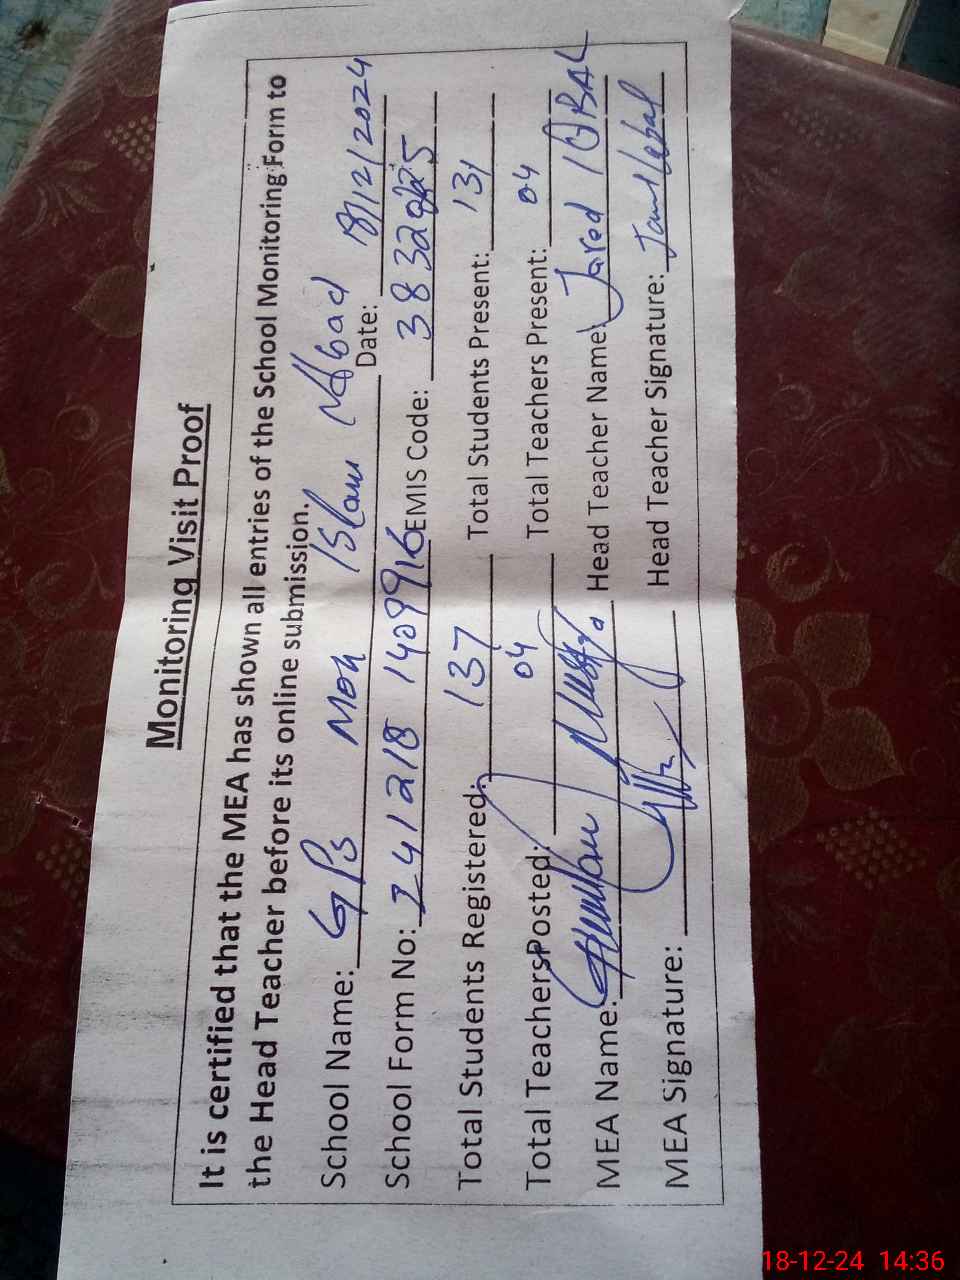 Monitoring Visit Proof
It is certified that the MEA has shown all entries of the School Monitoring Form to
the Head Teacher before its online submission.
School Name: GPS Islam Abad Date: 18/12/2024
School Form No: 241218 1409916 EMIS Code:
Total Students Registered: 137 Total Students Present: 131
Total Teachers Posted: 04 Total Teachers Present: 04
MEA Name: Head Teacher Name: Javed IQBAL
MEA Signature: Head Teacher Signature:
18-12-24 14:36